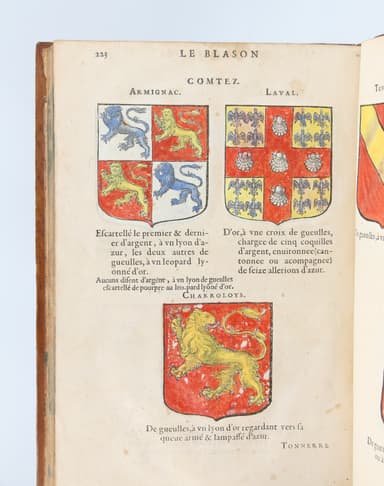 225
LE BLASON
COMTEZ.
ARMIGNAC.
LAVAL.
Escartellé le premier & derni-
er d'argent, à vn lyon d'a-
zur, les deux autres de
gueulles, à vn leopard ly-
onné d'or.
Aucuns disent d'argēt, à vn lyon de gueulles
escartellé de pourpre au leopard lyōné d'or.
D'or, à vne croix de gueulles,
chargee de cinq coquilles
d'argent, enuironnee (can-
tonnee ou acompagnee)
de seize allerions d'azur.
CHARROLOYS.
De gueulles, à vn lyon d'or regardant vers sa
queuë armé & lampassé d'azur.
TONNERRE